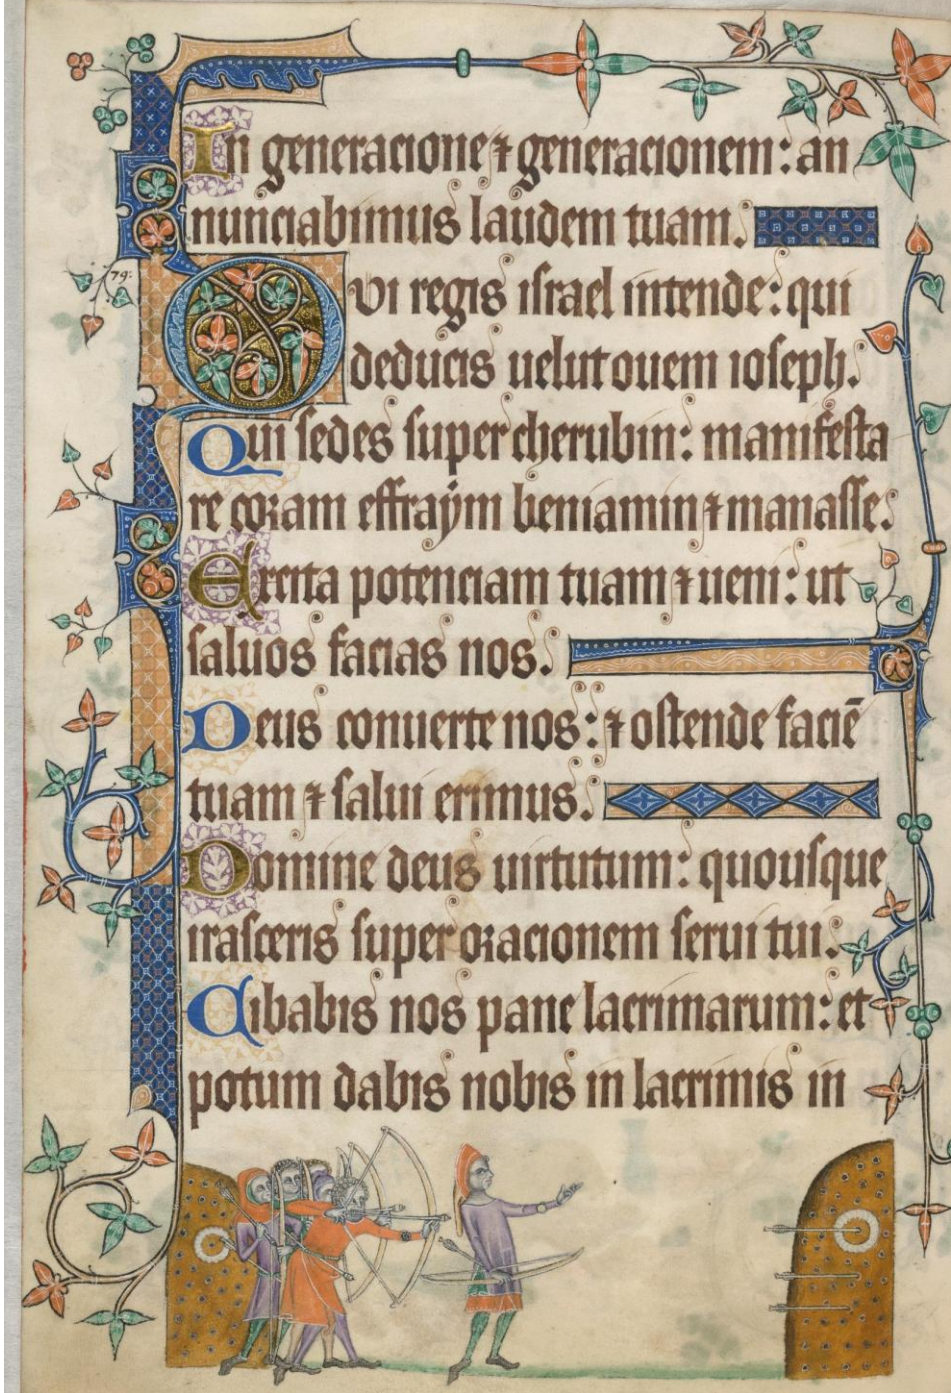 In generacione ⁊ generacionem: an
nunciabimus laudem tuam.
79:
Qvi regis israel intende: qui
deducis uelut ouem ioseph.
Qui sedes super cherubin: manifesta
re coram effraẏm beniamin ⁊ manasse.
Excita potenciam tuam ⁊ ueni: ut
saluos facias nos.
Deus conuerte nos: ⁊ ostende faciē
tuam ⁊ salui erimus.
Domine deus uirtutum: quousque
irasceris super oracionem serui tui.
Cibabis nos pane lacrimarum: et
potum dabis nobis in lacrimis in